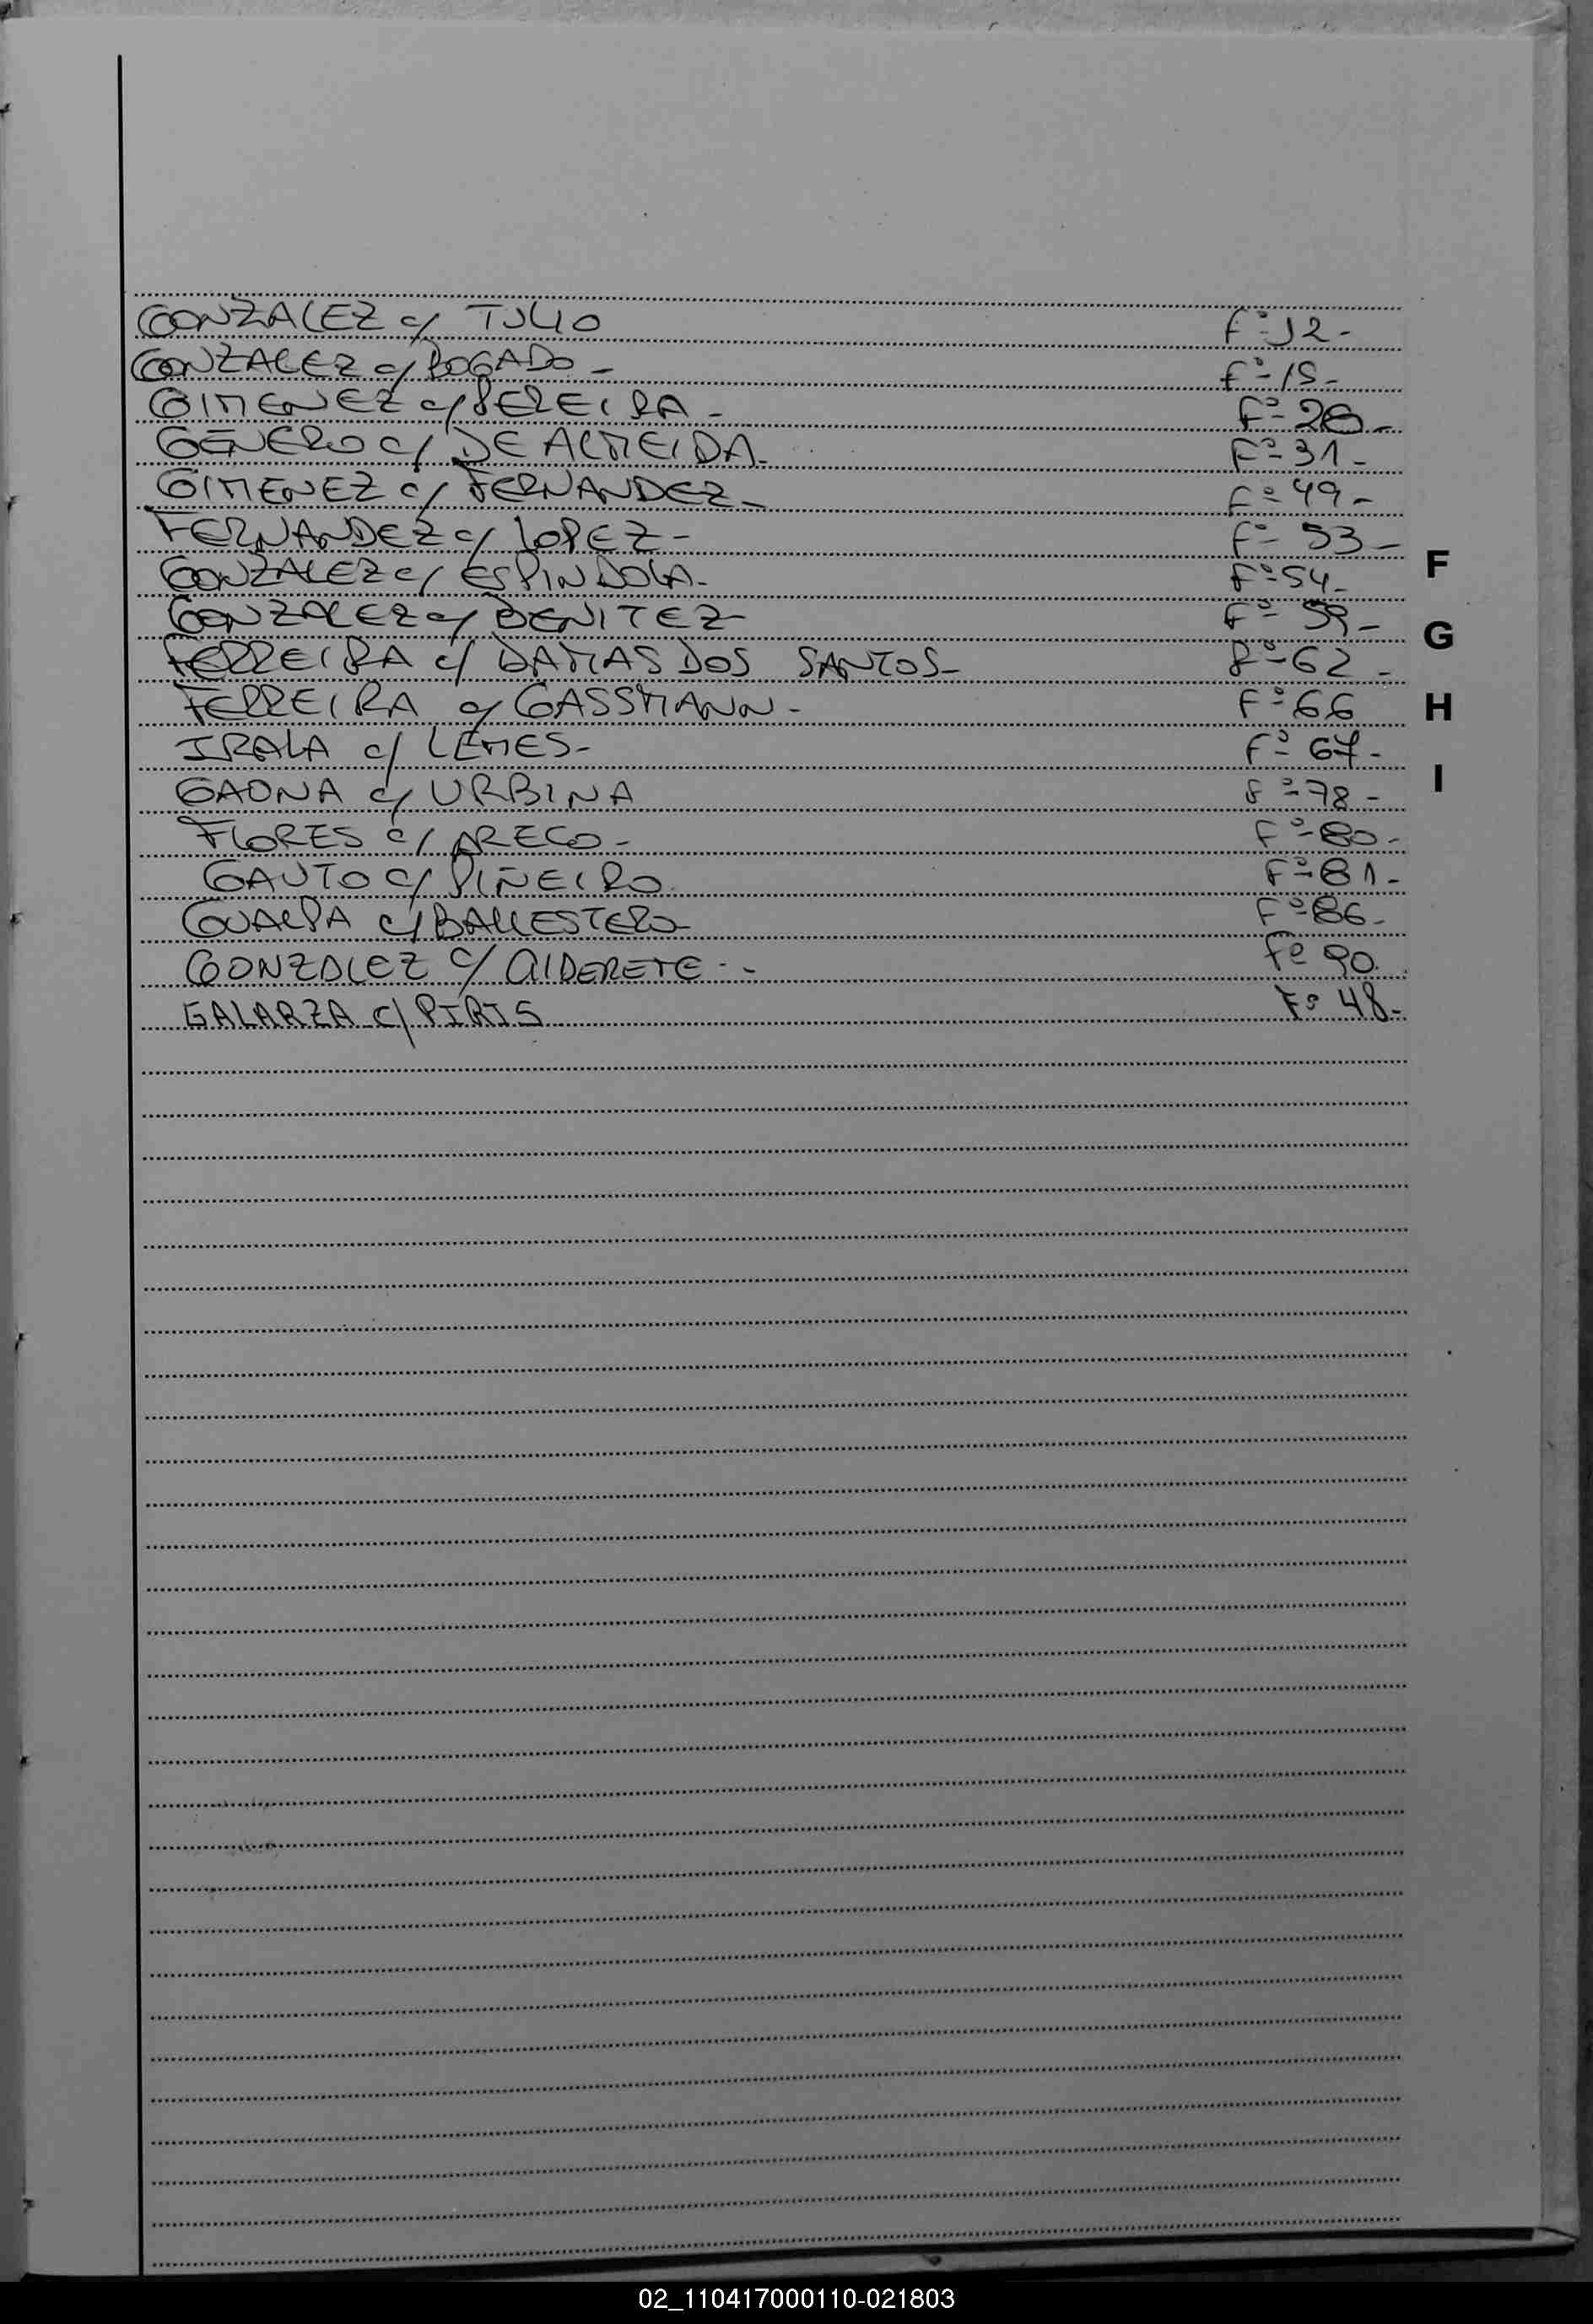 GONZALEZ c/ TULIO F° 12-
GONZALEZ c/ BOGADO - F° 15-
GIMENEZ c/ PEREIRA - F° 28-
GENERO c/ DE ALMEIDA - F° 31-
GIMENEZ c/ FERNANDEZ - F° 49-
FERNANDEZ c/ LOPEZ - F° 53-
GONZALEZ c/ ESPINDOLA - F° 54-
GONZALEZ c/ BENITEZ F° 59-
FERREIRA c/ DAMAS DOS SANTOS - F° 62-
FERREIRA c/ GASSMANN - F° 66
IRALA c/ LEMES - F° 67-
GAONA c/ URBINA F° 78-
FLORES c/ ARECO - F° 80-
GAUTO c/ PIÑEIRO F° 81-
GUALPA c/ BALLESTERO F° 86-
GONZALEZ c/ ALDERETE.- F° 90.
GALARZA c/ PIRIS F° 48-
F
G
H
I
02_110417000110-021803